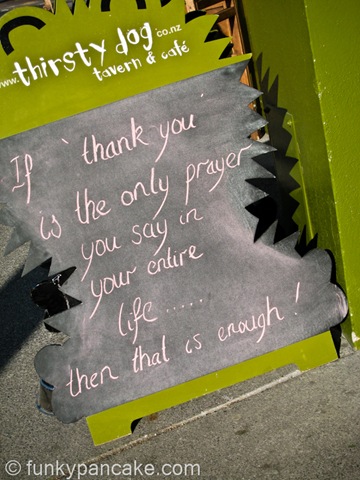 www.thirsty dog.co.nz
tavern & café
If 'thank you'
is the only prayer
you say in
your entire
life .....
then that is enough!
© funkypancake.com